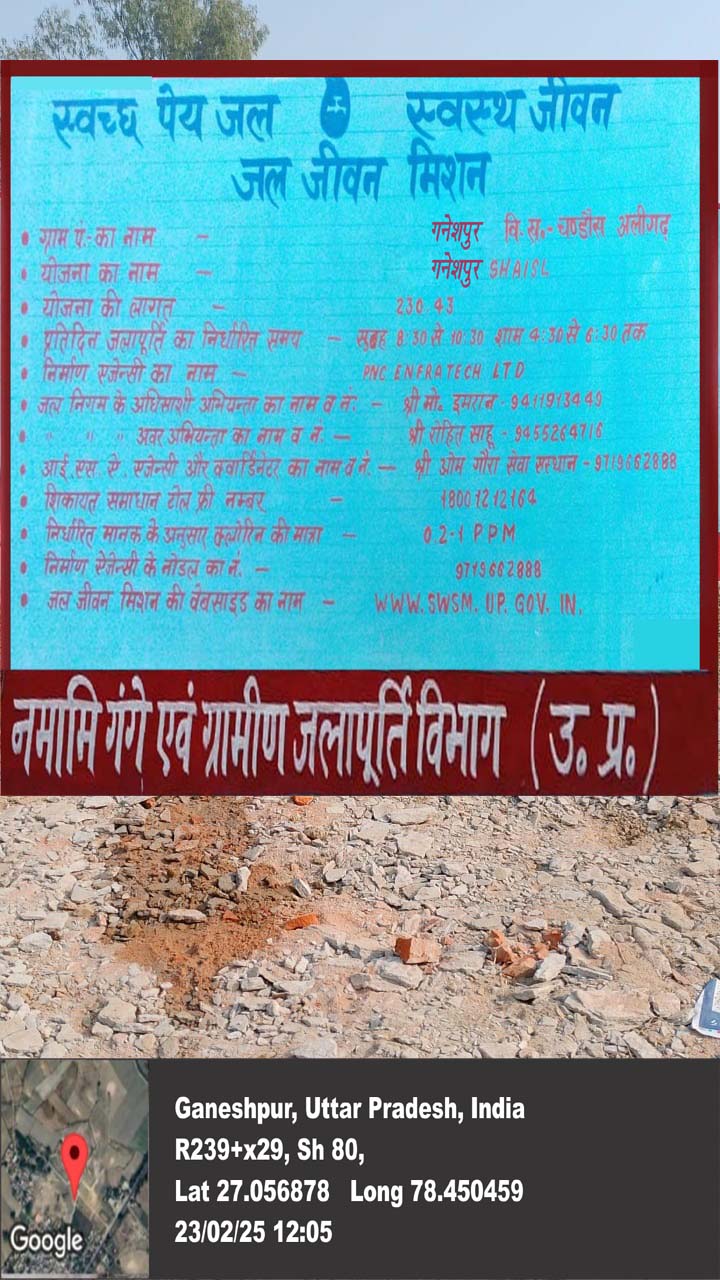 स्वच्छ पेय जल स्वस्थ जीवन
जल जीवन मिशन
• ग्राम पं.-का नाम – गनेशपुर वि.ख.-चण्डौस अलीगढ़
• योजना का नाम – गनेशपुर SHAISL
• योजना की लागत – 230.43
• प्रतिदिन जलापूर्ति का निर्धारित समय – सुबह 8:30 से 10:30 शाम 4:30 से 6:30 तक
• निर्माण एजेन्सी का नाम – PNC ENFRATECH LTD
• जल निगम के अधिसाशी अभियन्ता का नाम व नं: – श्री मो. इमरान - 9411913449
• " " " अवर अभियन्ता का नाम व नं. – श्री रोहित साहू - 9455264716
• आई.एस.ए. एजेन्सी और क्वार्डिनेटर का नाम व नं. – श्री ओम गौरा सेवा संस्थान - 9719662888
• शिकायत समाधान टोल फ्री नम्बर – 18001212164
• निर्धारित मानक के अनुसार क्लोरिन की मात्रा – 0.2-1 PPM
• निर्माण ऐजेन्सी के नोडल का नं. – 9719662888
• जल जीवन मिशन की वेबसाइड का नाम – WWW.SWSM.UP.GOV.IN.
नमामि गंगे एवं ग्रामीण जलापूर्ति विभाग (उ.प्र.)
Ganeshpur, Uttar Pradesh, India
R239+x29, Sh 80,
Lat 27.056878 Long 78.450459
23/02/25 12:05
Google